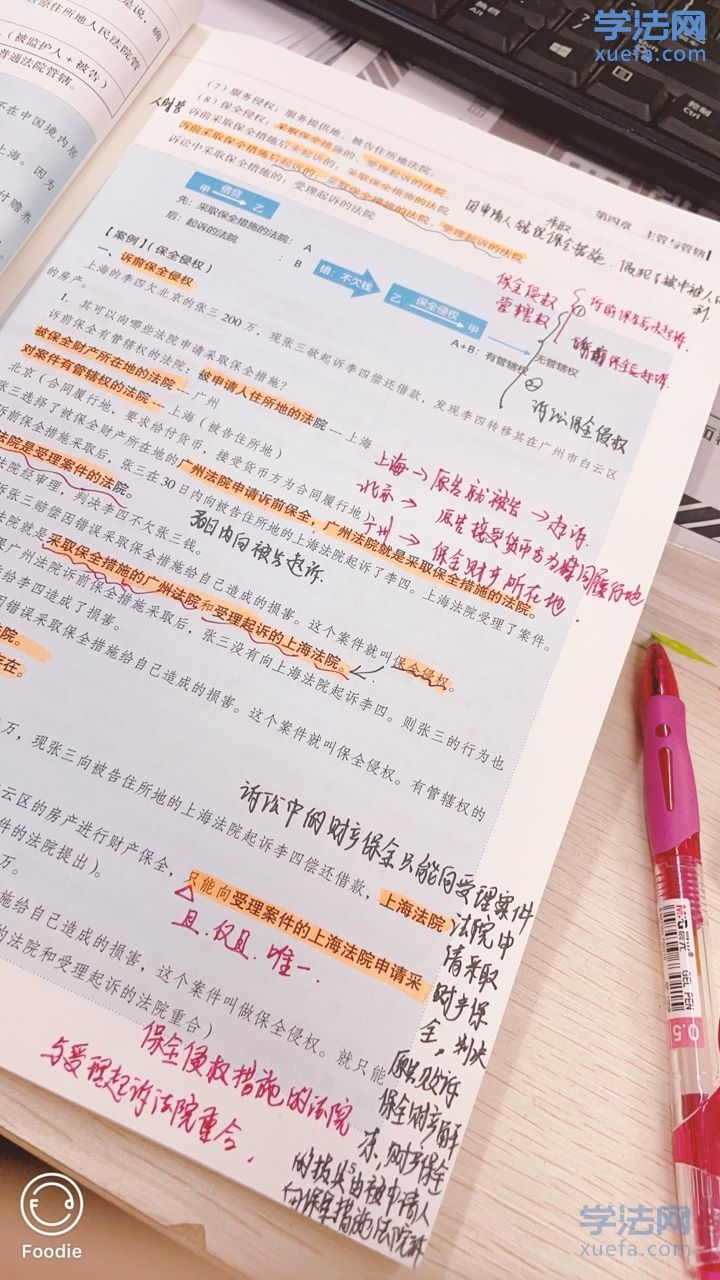 学法网
xuefa.com
是说，确
原住所地人民法院管
（被监护人+被告）
普通法院管辖。
不在中国境内居
上海。因为
付赡养
（7）服务侵权：服务提供地、被告住所地法院。
（8）保全侵权：采取保全措施的、受理起诉的法院
诉前采取保全措施后未起诉的：采取保全措施的法院
诉前采取保全措施后起诉的：采取保全措施的法院、受理起诉的法院
诉讼中采取保全措施的：受理起诉的法院
第四章 主管与管辖
因申请人错误采取保全措施，侵犯了被申请人的
甲 借贷 乙
先：采取保全措施的法院：A
后：起诉的法院：B
错：不欠钱
乙 保全侵权 甲
A+B：有管辖权
无管辖权
保全侵权
管辖权
① 诉前保全后未起诉。
诉前保全后起诉。
② 诉讼保全侵权
【案例】（保全侵权）
一、诉前保全侵权
上海的李四欠北京的张三200万，现张三欲起诉李四偿还借款，发现李四转移其在广州市白云区
的房产。
1. 其可以向哪些法院申请采取保全措施？
诉前保全有管辖权的法院：被申请人住所地的法院—上海
被保全财产所在地的法院—广州
对案件有管辖权的法院—上海（被告住所地）
北京（合同履行地，要求给付货币，接受货币方为合同履行地）
张三选择了被保全财产所在地的广州法院申请诉前保全，广州法院就是采取保全措施的法院。
诉前保全措施采取后，张三在30日内向被告住所地的上海法院起诉了李四。上海法院受理了案件。
法院是受理案件的法院。
法院经审理，判决李四不欠张三钱。
诉张三赔偿因错误采取保全措施给自己造成的损害。这个案件就叫保全侵权。
法院就是采取保全措施的广州法院和受理起诉的上海法院。
果广州法院诉前保全措施采取后，张三没有向上海法院起诉李四。则张三的行为也
给李四造成了损害。
因错误采取保全措施给自己造成的损害。这个案件就叫保全侵权。有管辖权的
法院。
存在。
上海→原告就被告→起诉.
北京→原告接受货币方为合同履行地
广州→保全财产所在地.
30日内向被告起诉.
万，现张三向被告住所地的上海法院起诉李四偿还借款，上海法院
云区的房产进行财产保全，只能向受理案件的上海法院申请采
件的法院提出）。
万。
施给自己造成的损害，这个案件叫做保全侵权。就只能
的法院和受理起诉的法院重合）
且.仅且.唯一.
诉讼中的财产保全只能向受理案件
法院申
请采取
财产保
全，判决
原告败诉
保全财产解
冻，财产保全
的损失由被申请人
向保全措施法院诉
保全侵权措施的法院
与受理起诉法院重合.
M&G 晨光
GEL PEN
0.5
Foodie
学法网
xuefa.com